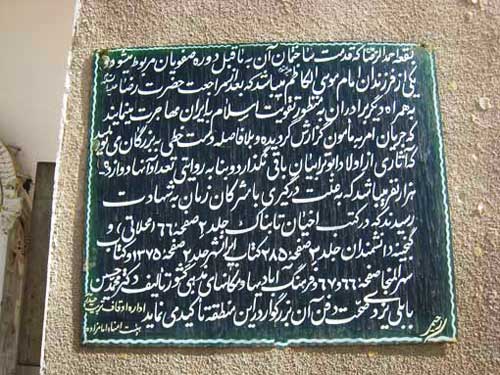 بقعه احمدالرضا که قدمت ساختمان آن به ماقبل دوره صفویان مربوط میشود
یکی از فرزندان امام موسی الکاظم میباشد که بعد از مراجعت حضرت رضا
به همراه دیگر برادران به منظور تقویت اسلام به ایران مهاجرت مینمایند
که جریان امر به مأمون گزارش گردیده و بلافاصله دست خطی به بزرگان می
که آثاری از اولاد ابوترابیان باقی نگذارد و بنا به روایتی تعداد آنها دوازده
هزار نفر میباشد که به علت درگیری با مشرکان زمان به شهادت
رسیدند که در کتب اخیان تابناک جلد ۲ صفحه ۱۶۶ (علاق) و
گنجینه دانشمندان جلد ۳ صفحه ۲۸۵ کتاب ایرانشهر جلد ۲ صفحه ۱۳۷۵ و کتاب
صفحه ۶۶ و ۶۷ و فرهنگ آبادیها و مکانهای مذهبی کشور تألیف دکتر محمد حسن
یزدی صحت دفن آن بزرگوار در این منطقه تاکید می نماید
اداره اوقاف
هیئت امناء امامزاده